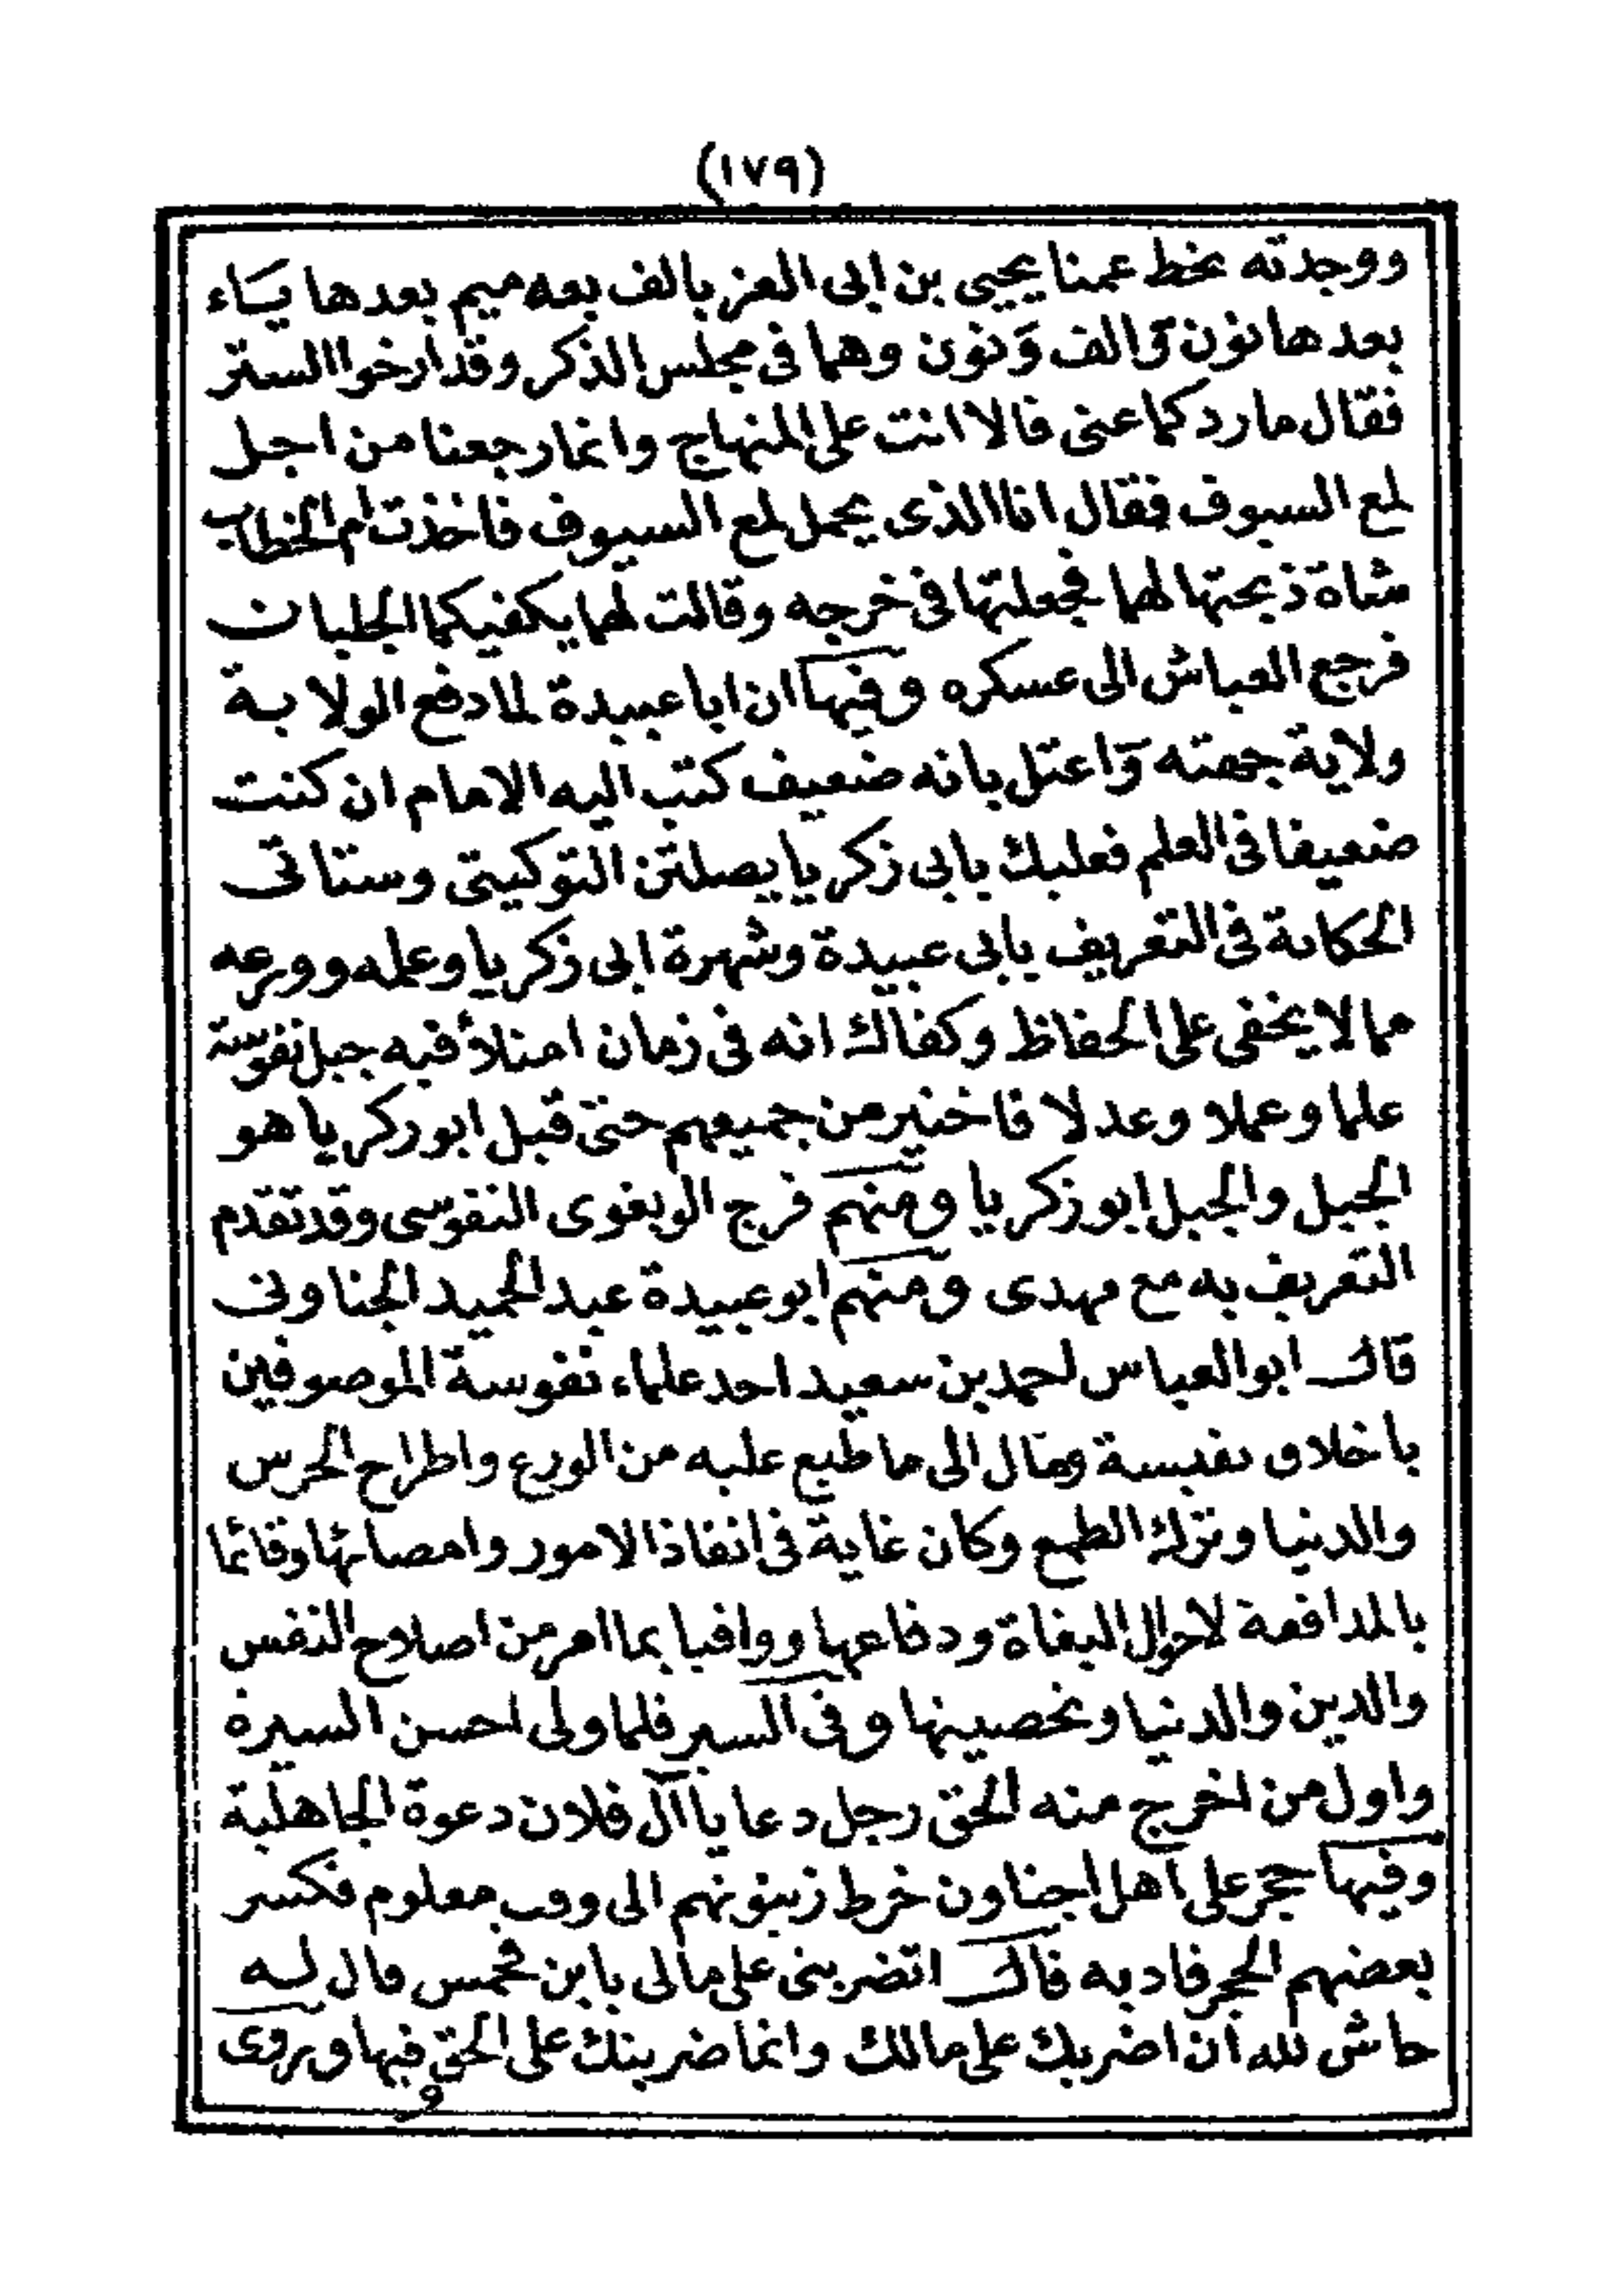 (١٧٩)
ووجدته بخط عمنا يحيى بن ابى العز بالف بعده ميم بعدها يَاء
بعدها نون وَالف وَنون وهما فى مجلس الذكر وقد ارخوا الستر
فقال ما ردكما عنى قالا انت على المنهاج وانما رجعنا من اجل
لمع السيوف فقال انا الذى يحمل لمع السيوف فاخذت ام الخطاب
شاة ذبحتها لهما فجعلتها فى خرجه وقالت لهما يكفيكما الجلبان
فرجع العباس الى عسكره وفيها ان ابا عبيدة لما دفع الولاية
ولاية جهته وَاعتل بانه ضعيف كتب اليه الامام ان كنت
ضعيفا فى العلم فعليك بابى زكريا يصلتن التوكيتى وستاتى
الحكاية فى التعريف بابى عبيدة وشهرة ابى زكريا وعلمه وورعه
مما لا يخفى على الحفاظ وكفاك انه فى زمان امتلأ فيه جبل نفوسة
علما وعملا وعدلا فاختير من جميعهم حتى قيل ابو زكريا هو
الجبل والجبل ابو زكريا ومنهم فرج الويغوى النفوسى وقد تقدم
التعريف به مع مهدى ومنهم ابو عبيدة عبد الحميد الجناونى
قال ابو العباس احمد بن سعيد احد علماء نفوسة الموصوفين
باخلاق نفيسة ومال الى ما طبع عليه من الورع واطراح الحرس
والدنيا وترك الطمع وكان غاية فى انفاذ الامور وامضائها وقائما
بالمدافعة لاحوال البغاة ودفاعها ووافيا بما امر من اصلاح النفس
والدين والدنيا وتحصينها وفى السير فلما ولى احسن السيرة
واول من اخرج منه الحق رجل دعا يا آل فلان دعوة الجاهلية
وفيها حجر على اهل اجناون خرط زيتونهم الى وقت معلوم فكسر
بعضهم الحجر فادبه قال اتضربنى على مالى يا بن فحمس قال له
حاش لله ان اضربك على مالك وانما ضربتك على الحق فيها ويروى
و